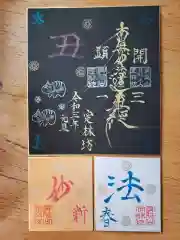 開三
南無妙法蓮華経
顕一
定林坊
丑
令和三年
元旦
法
春
妙
新